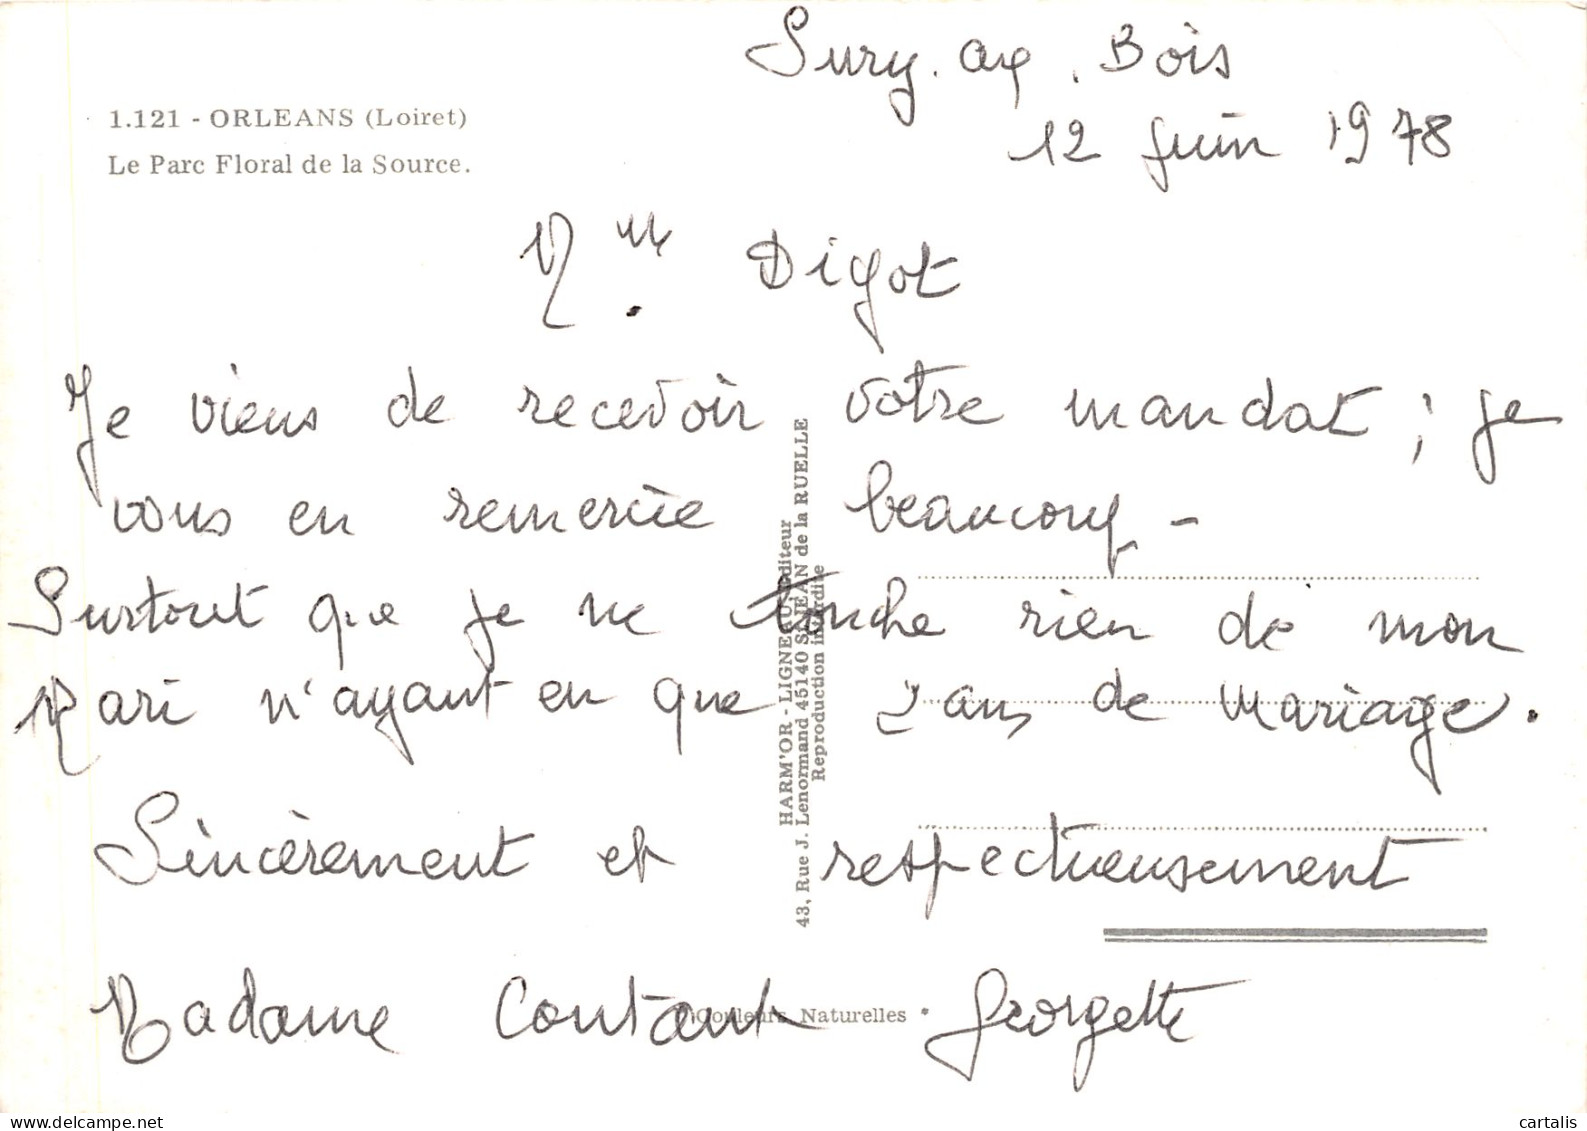 Sury. aux. Bois
12 Juin 1978
1.121 - ORLEANS (Loiret)
Le Parc Floral de la Source.
Mme Digot
Je viens de recevoir votre mandat ; je
vous en remercie beaucoup -
Surtout que je ne touche rien de mon
Mari n'ayant en que 2 ans de Mariage.
Sincèrement et respectueusement
Madame Coutant Georgette
HARM'OR - LIGNEAU, éditeur
43, Rue J. Lenormand 45140 St JEAN de la RUELLE
Reproduction interdite
Couleurs Naturelles
delcampe.net
cartalis